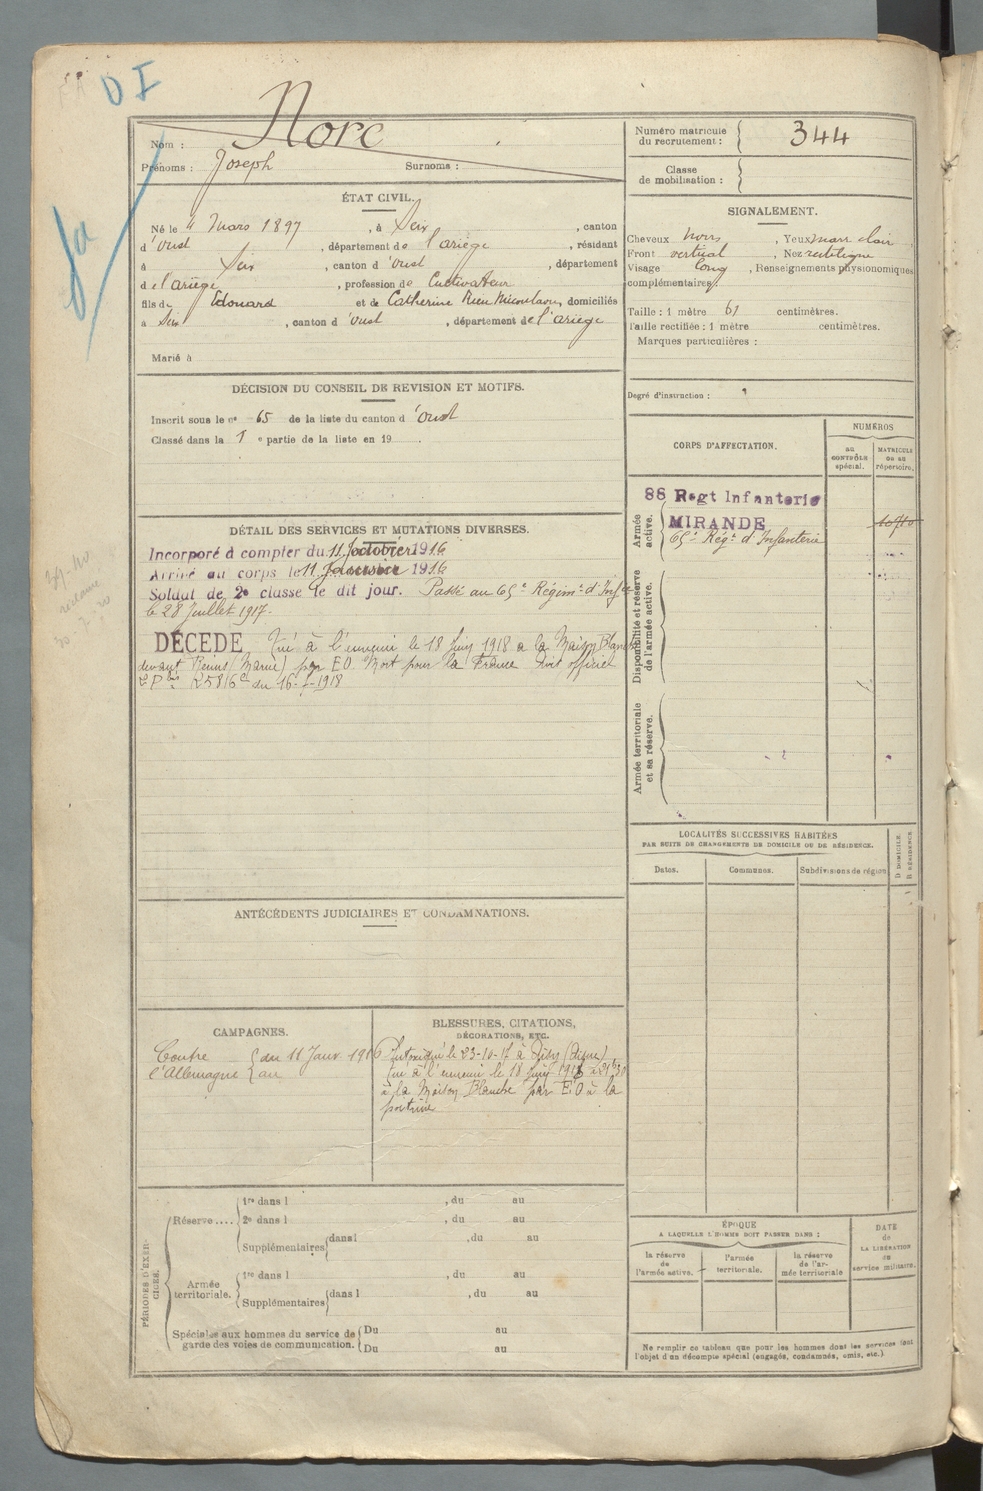 D I
Norc
Nom :
Prénoms : Joseph Surnoms :
Numéro matricule
du recrutement : 344
Classe
de mobilisation :
ÉTAT CIVIL.
Né le 4 Mars 1897, à Seix, canton
d'Oust, département de l'ariège, résidant
à Seix, canton d'Oust, département
de l'ariège, profession de Cultivateur
fils de Edouard et de Catherine Rieu Micoulaou, domiciliés
à Seix, canton d'Oust, département de l'ariège
Marié à
SIGNALEMENT.
Cheveux noirs, Yeux marr clair
Front vertical, Nez rectiligne
Visage long, Renseignements physionomiques
complémentaires:
Taille : 1 mètre 61 centimètres.
Taille rectifiée : 1 mètre centimètres.
Marques particulières :
Degré d'instruction :
DÉCISION DU CONSEIL DE REVISION ET MOTIFS.
Inscrit sous le nº 65 de la liste du canton d'Oust
Classé dans la 1 e partie de la liste en 19 .
DÉTAIL DES SERVICES ET MUTATIONS DIVERSES.
Incorporé à compter du 11 1916
Arrivé au corps le 11 1916
Soldat de 2e classe le dit jour. Passé au 65e Régimt d'Infie
le 28 Juillet 1917.
DÉCÉDÉ Tué à l'ennemi le 18 Juin 1918 a la Maison Blanche
devant Reims (Marne) par EO Mort pour la France avis officiel
du 16-7-1918
CORPS D'AFFECTATION.
NUMÉROS
AU CONTRÔLE spécial.
MATRICULE OU AU répertoire.
Armée active.
88 Regt Infanterie
MIRANDE
65e Régt d'Infanterie
Disponibilité et réserve de l'armée active.
Armée territoriale et sa réserve.
LOCALITÉS SUCCESSIVES HABITÉES
PAR SUITE DE CHANGEMENTS DE DOMICILE OU DE RÉSIDENCE.
Dates. Communes. Subdivisions de région
D DOMICILE. R RÉSIDENCE.
ANTÉCÉDENTS JUDICIAIRES ET CONDAMNATIONS.
CAMPAGNES.
Contre du 11 Janv. 1916
l'Allemagne au
BLESSURES, CITATIONS,
DÉCORATIONS, ETC.
Intoxiqué le 23-10-17 à (Aisne)
tué à l'ennemi le 18 Juin 1918 à 21h30
à la Maison Blanche par E.O à la
poitrine
PÉRIODES D'EXERCICES.
Réserve ....
1re dans l , du au
2e dans l , du au
Supplémentaires dans l , du au
Armée territoriale.
1re dans l , du au
Supplémentaires dans l , du au
Spéciales aux hommes du service de
garde des voies de communication.
Du au
Du au
ÉPOQUE
A LAQUELLE L'HOMME DOIT PASSER DANS :
la réserve de l'armée active.
l'armée territoriale.
la réserve de l'armée territoriale
DATE de LA LIBÉRATION du service militaire.
Ne remplir ce tableau que pour les hommes dont les services font
l'objet d'un décompte spécial (engagés, condamnés, omis, etc.).